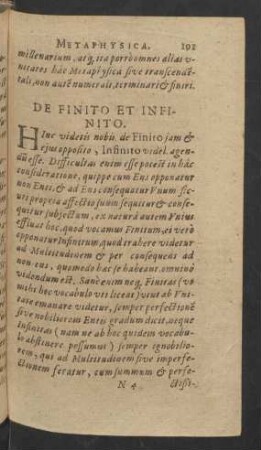 METAPHYSICA. 192
millenarium, atq; ita per omnes alias v-
nitates hac Metaphysica sive transcendē-
tali, non autē numerali, terminari & finiri.
DE FINITO ET INFI-
NITO.
HInc videtis nobis de Finito jam &
ejus opposito, Infinito videl. agen-
dū esse. Difficultas enim esse potest in hâc
consideratione, quippe cum Ens opponatur
non Enti, & ad Ens consequatur Vnum sic-
uti propria affectio suum sequitur & conse-
quitur subjectum, ex naturâ autem Vnius
effluat hoc, quod vocamus Finitum, ei verò
opponatur Infinitum, quod trahere videtur
ad Multitudinem & per consequens ad
non-ens, quomodo hac se habeant, omninò
videndum est. Sanè enim neq; Finitas (vt
mihi hoc vocabulo vti liceat) vtut ab Vni-
tate emanare videtur, semper perfectionē
sive nobiliorem Entis gradum dicit, neque
Infinitas (nam ne ab hoc quidem vocabu-
lo abstinere possumus) semper ignobilio-
rem, qui ad Multitudinem sive imperfe-
ctionem feratur, cum summum & perfe-
N 4 ctissi-